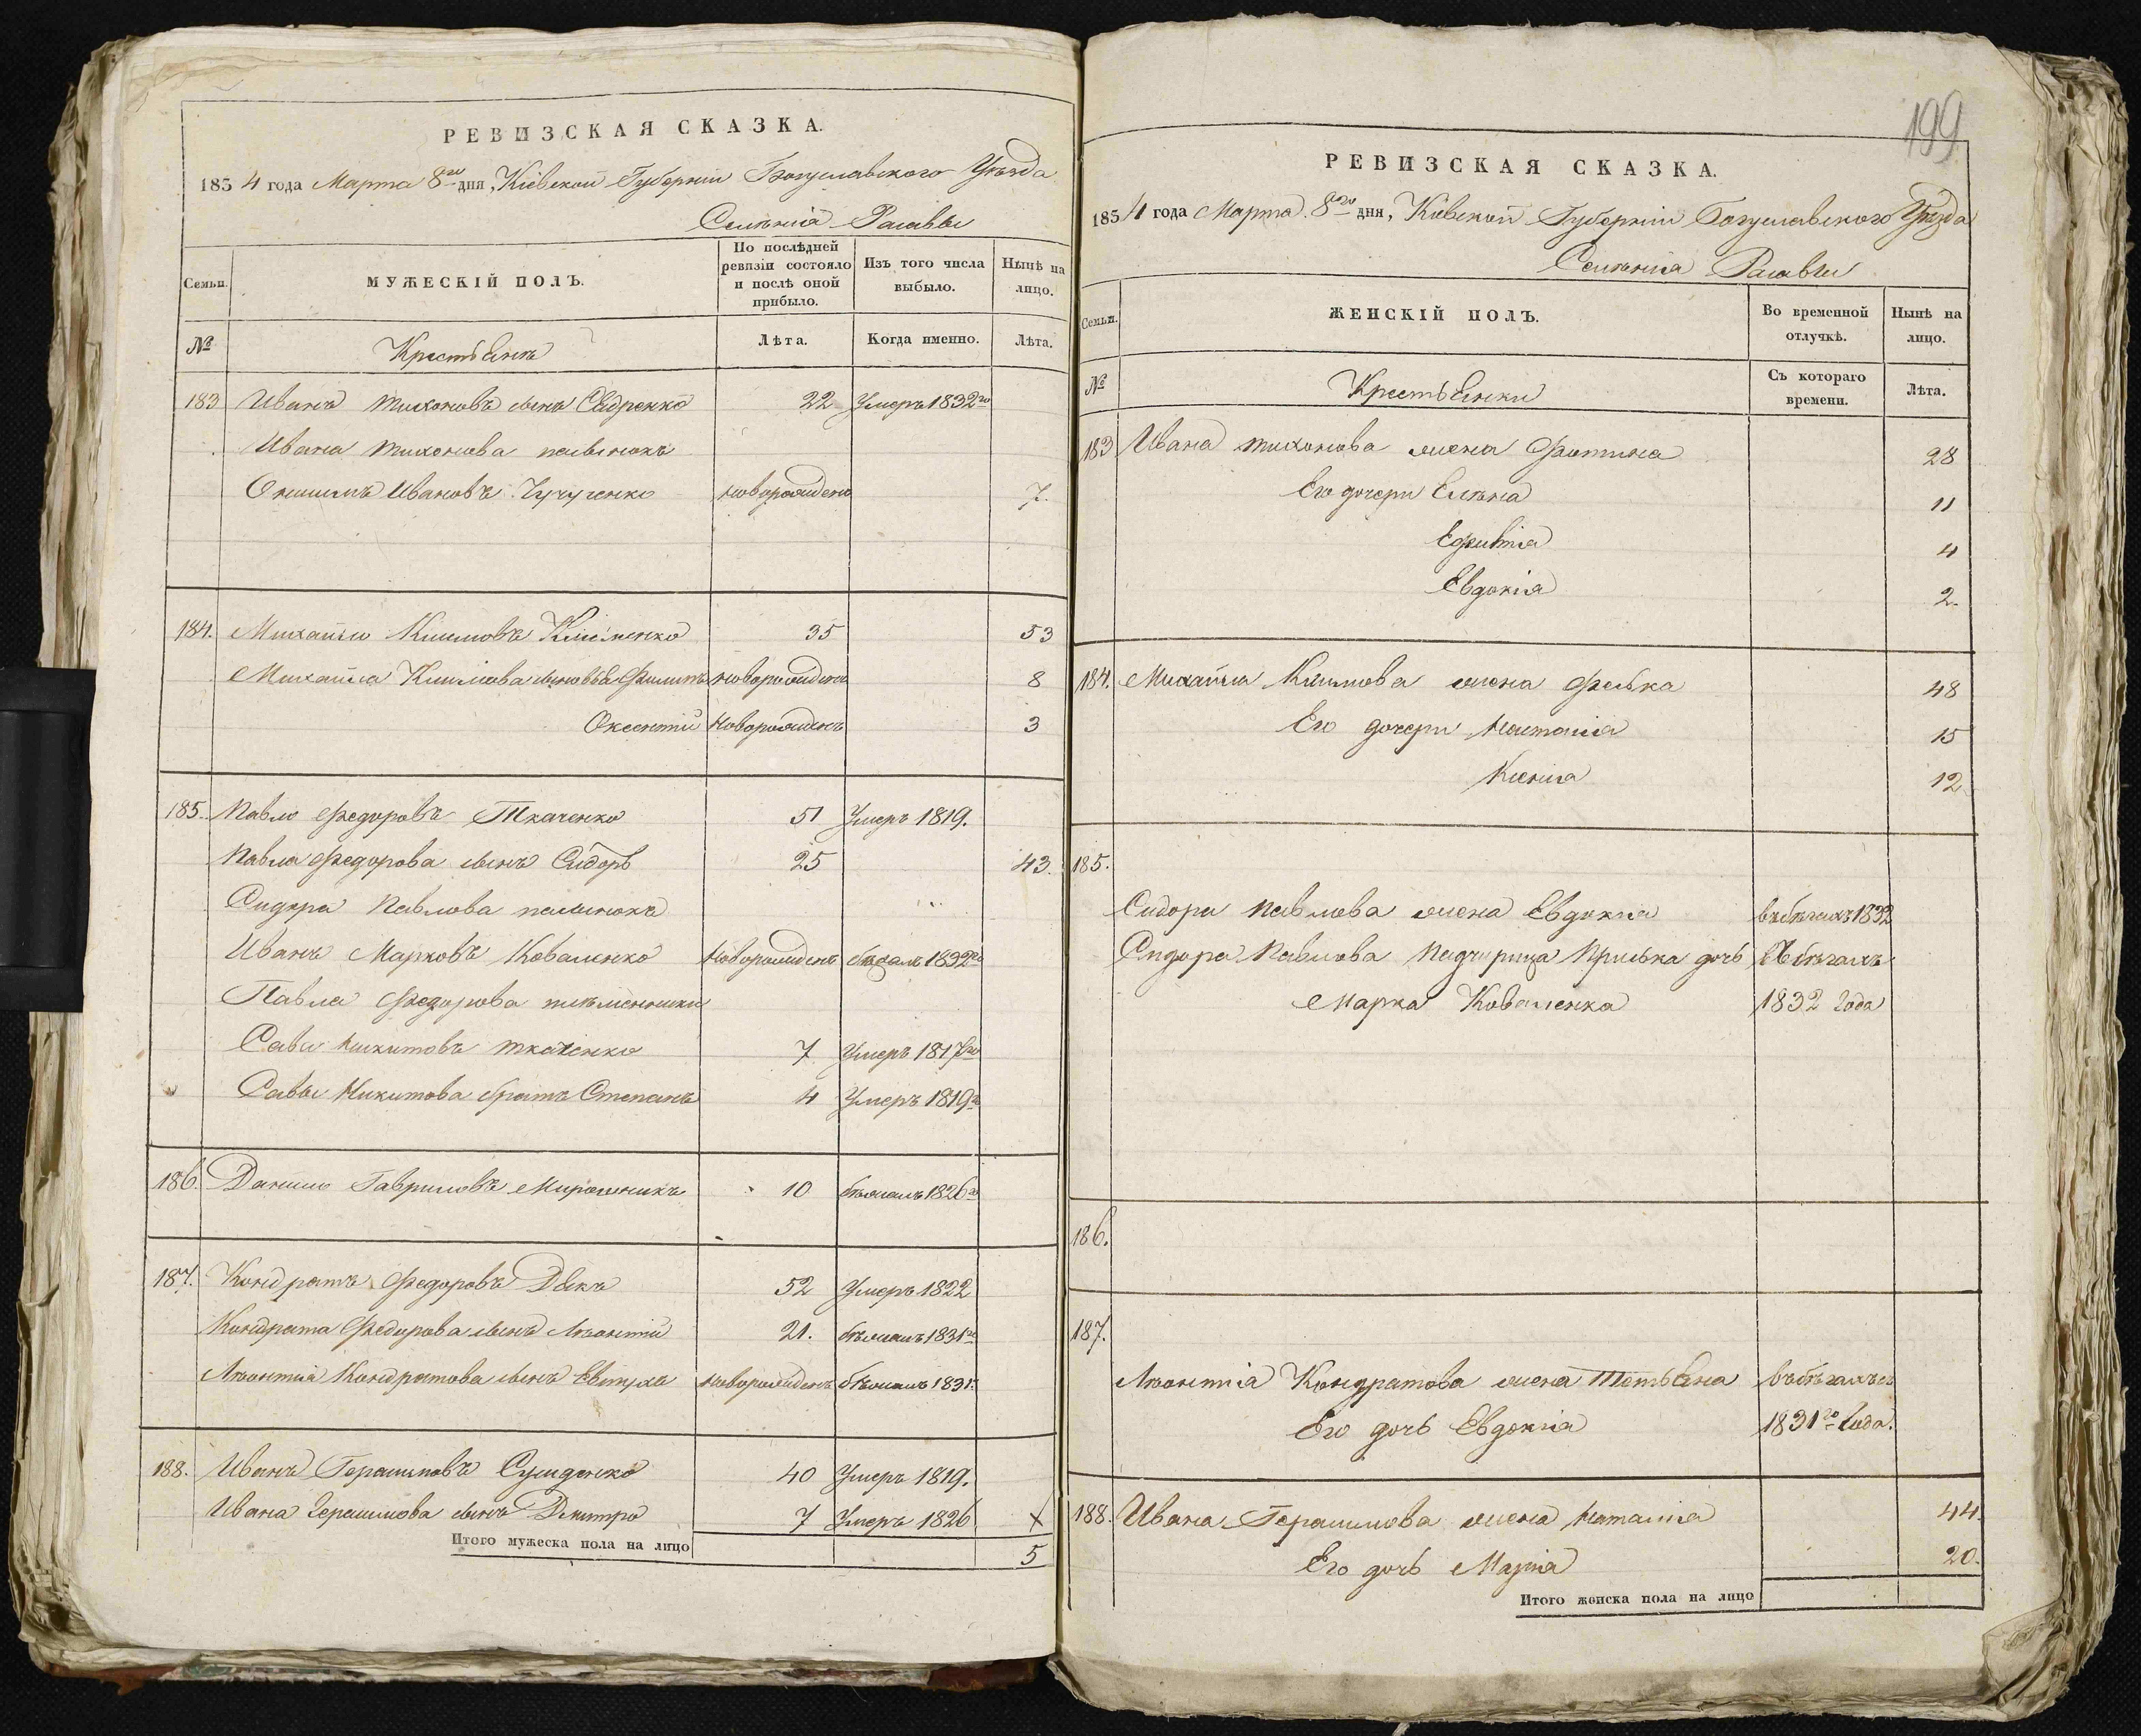 РЕВИЗСКАЯ СКАЗКА.
1834 года Марта 8го дня, Кіевской Губерніи Богуславского Уѣзда
Селенія Расавы
Семьи.
МУЖЕСКІЙ ПОЛЪ.
По послѣдней ревизіи состояло и послѣ оной прибыло.
Изъ того числа выбыло.
Нынѣ на лицо.
№
Крестьянъ
Лѣта.
Когда именно.
Лѣта.
183 Иванъ Тихоновъ сынъ 22 Умеръ 1832го
Ивана Тихонова пасынокъ
Онисимъ Ивановъ новорожденъ 7.
184. Михайло Климовъ Клименко 35 53
Михайла Климова сыновья Филипъ новорожденъ 8
Оксентій новорожденъ 3
185. Павло Федоровъ Ткаченко 51 Умеръ 1819.
Павла Федорова сынъ Сидоръ 25 43.
Сидора Павлова пасынокъ
Иванъ Марковъ Коваленко новорожденъ бѣжалъ 1832го
Павла Федорова племянники
Сава Никитовъ Ткаченко 7 Умеръ 1817го
Савы Никитова братъ Степанъ 4 Умеръ 1819го
186. Данило Гавриловъ Мирошникъ 10 бѣжалъ 1826го
187. Кондратъ Федоровъ Дякъ 52 Умеръ 1822
Кондрата Федорова сынъ Леонтій 21. бѣжалъ 1831го
Леонтія Кондратова сынъ новорожденъ бѣжалъ 1831.
188. Иванъ Герасимовъ 40 Умеръ 1819.
Ивана Герасимова сынъ Дмитро 7 Умеръ 1826 X
Итого мужеска пола на лицо 5
199
РЕВИЗСКАЯ СКАЗКА.
1834 года Марта 8го дня, Кіевской Губерніи Богуславского Уѣзда
Селенія Расавы
Семьи.
ЖЕНСКІЙ ПОЛЪ.
Во временной отлучкѣ.
Нынѣ на лицо.
№
Крестьянки
Съ котораго времени.
Лѣта.
183 Ивана Тихонова жена Фотина 28
Его дочери Елена 11
4
Евдокія 2.
184. Михайла Климова жена Феська 48
Его дочери Наталія 15
Ксенія 12
185.
Сидора Павлова жена Евдокія въ бѣгахъ 1832
Сидора Павлова падчирица Приська дочь въ бѣгахъ
Марка Коваленка 1832 года
186.
187.
Леонтія Кондратова жена Татьяна въ бѣгахъ съ
Его дочь Евдокія 1831го года.
188. Ивана Герасимова жена Наталія 44.
Его дочь Марія 20.
Итого женска пола на лицо